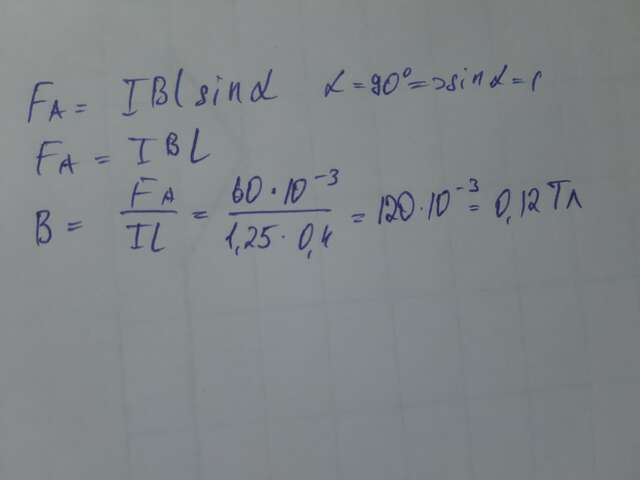 F_A = IBl sinα α = 90° => sinα = 1
F_A = IBL
B = F_A / Il = 60·10⁻³ / 1,25·0,4 = 120·10⁻³ = 0,12 Тл